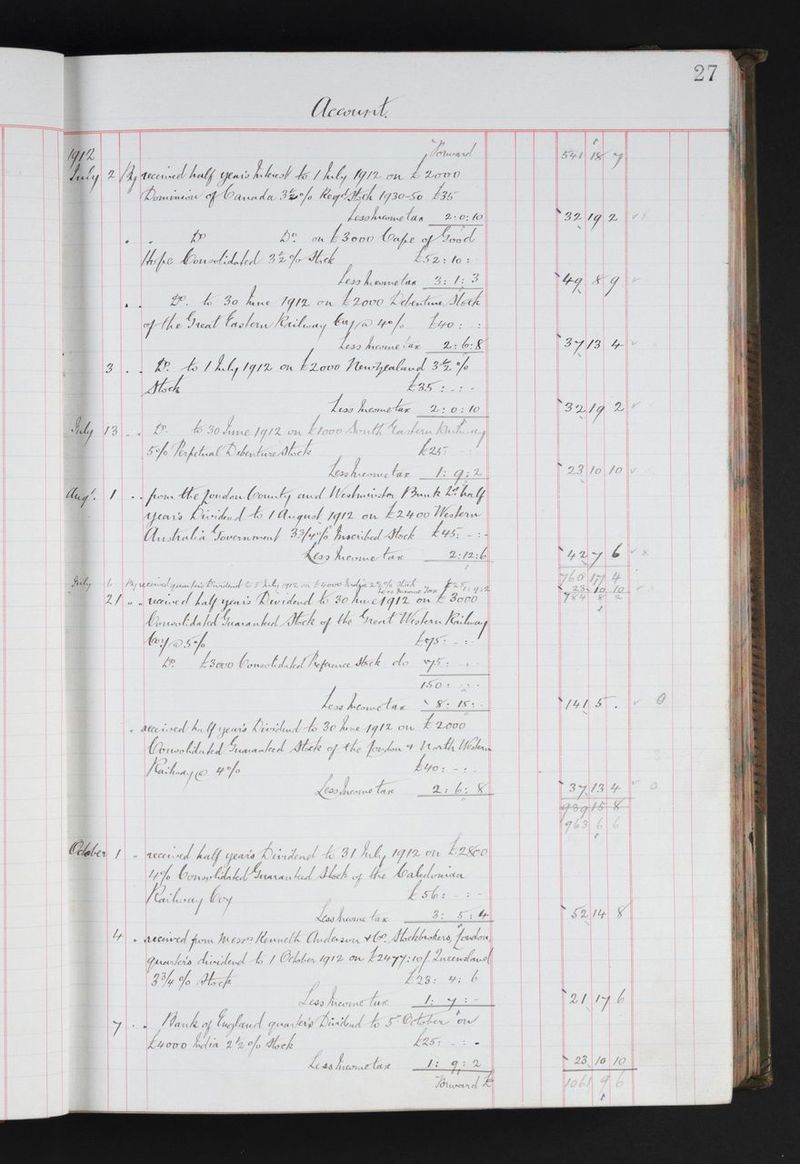 27
Account.
Forward 541 18 7
1912
July 2 By received half year's Interest to 1 July 1912 on £2000
Dominion of Canada 3½% Regd Stock 1930-50 £35
Less Income tax 2:0:10 32 19 2
" " Do Do on £3000 Cape of Good
Hope Consolidated 3½% Stock £52:10:
Less Income tax 3:1:3 49 8 9
" " Do. to 30 June 1912 on £2000 Debenture Stock
of the Great Eastern Railway Coy @ 4% £40: :
Less Income tax 2:6:8 37 13 4
3 " " Do. to 1 July 1912 on £2000 New Zealand 3½%
Stock £35:-:-
Less Income tax 2:0:10 32 19 2
July 13 " " Do. to 30 June 1912 on £1000 South Eastern Railway
5% Perpetual Debenture Stock £25:
Less Income tax 1:9:2 23 10 10
Augt. 1 " " from the London County and Westminster Bank Ld half
year's Dividend to 1 August 1912 on £2400 Western
Australia Government 3¾% Inscribed Stock £45:-:-
Less Income tax 2:12:6 42 7 6
760 17 4
July 6 By received quarter's Dividend to 5 July 1912 on £4000 India 2½% Stock £25:
Less Income Tax 1:9:2 23 10 10
784 8 2
21 " " received half year's Dividend to 30 June 1912 on £3000
Consolidated Guaranteed Stock of the Great Western Railway
Coy @ 5% £75:-:-
Do. £3000 Consolidated Preference Stock do 75: .
150: .
Less Income tax 8:15:- 141 5 .
" received half year's Dividend to 30 June 1912 on £2000
Consolidated Guaranteed Stock of the London & North Western
Railway @ 4% £40:-:-
Less Income tax 2:6:8 37 13 4
939 15 8
963 6 6
October 1 " received half year's Dividend to 31 July 1912 on £2800
4% Consolidated Guaranteed Stock of the Caledonian
Railway Coy £56:-:-
Less Income tax 3:5:4 52 14 8
4 " received from Messrs Kenneth Anderson & Co. Stockbrokers, London
quarter's dividend to 1 October 1912 on £2477:10/ Queensland
3¾% Stock £23:4:6
Less Income tax 1:7:- 21 17 6
7 " " Bank of England quarter's Dividend to 5 October on
£4000 India 2½% Stock £25:-:-
Less Income tax 1:9:2 23 10 10
Forward £ 1061 9 6